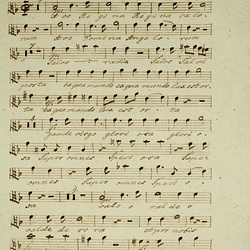 Ave Regina Regina coelo
rum Ave Domina Angelo rum
Salve radix Salve Salve
porta ex qua mundo ex qua mundo lux est or
ta ex qua mundo lux est or ta
Gaude virgo glori osa glori o
sa Super omnes Speci osa Super
omnes Super omnes Speci o
sa Vale o valde o
valde de co ra et pro nobis